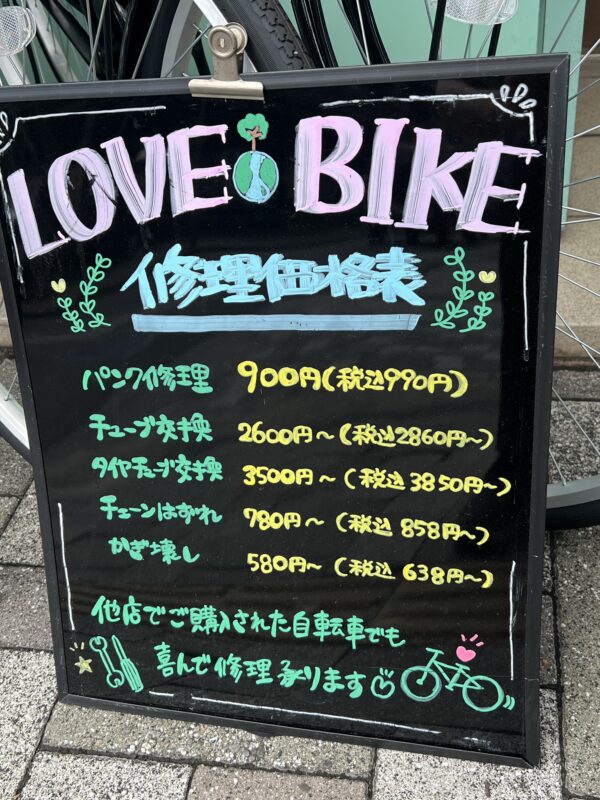 LOVE BIKE
修理価格表
パンク修理 900円(税込990円)
チューブ交換 2600円～(税込2860円～)
タイヤチューブ交換 3500円～(税込3850円～)
チェーンはずれ 780円～(税込858円～)
かぎ壊し 580円～(税込638円～)
他店でご購入された自転車でも
喜んで修理承ります